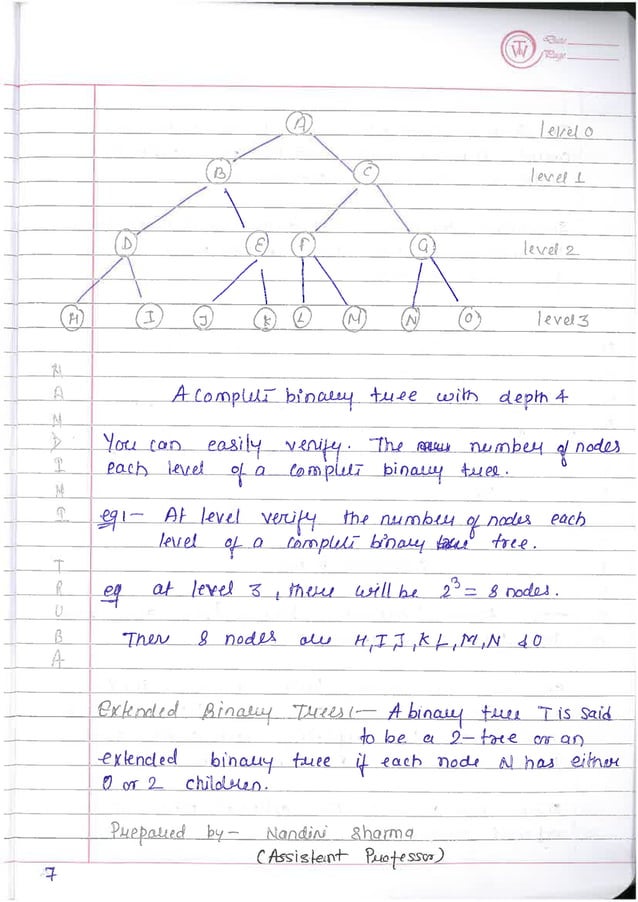 Date
Page
A
level 0
B C
level 1
D E F G
level 2
H I J K L M N O
level 3
A complete binary tree with depth 4
You can easily verify. The number of nodes
each level of a complete binary tree.
eg 1- At level verify the number of nodes each
level of a complete binary tree.
eg at level 3, there will be 2³ = 8 nodes.
Then 8 nodes are H, I, J, K L, M, N & O
Extended Binary Trees:- A binary tree T is said
to be a 2-tree or an
extended binary tree if each node N has either
0 or 2 children.
Prepared by- Nandini Sharma
(Assistant Professor)
7